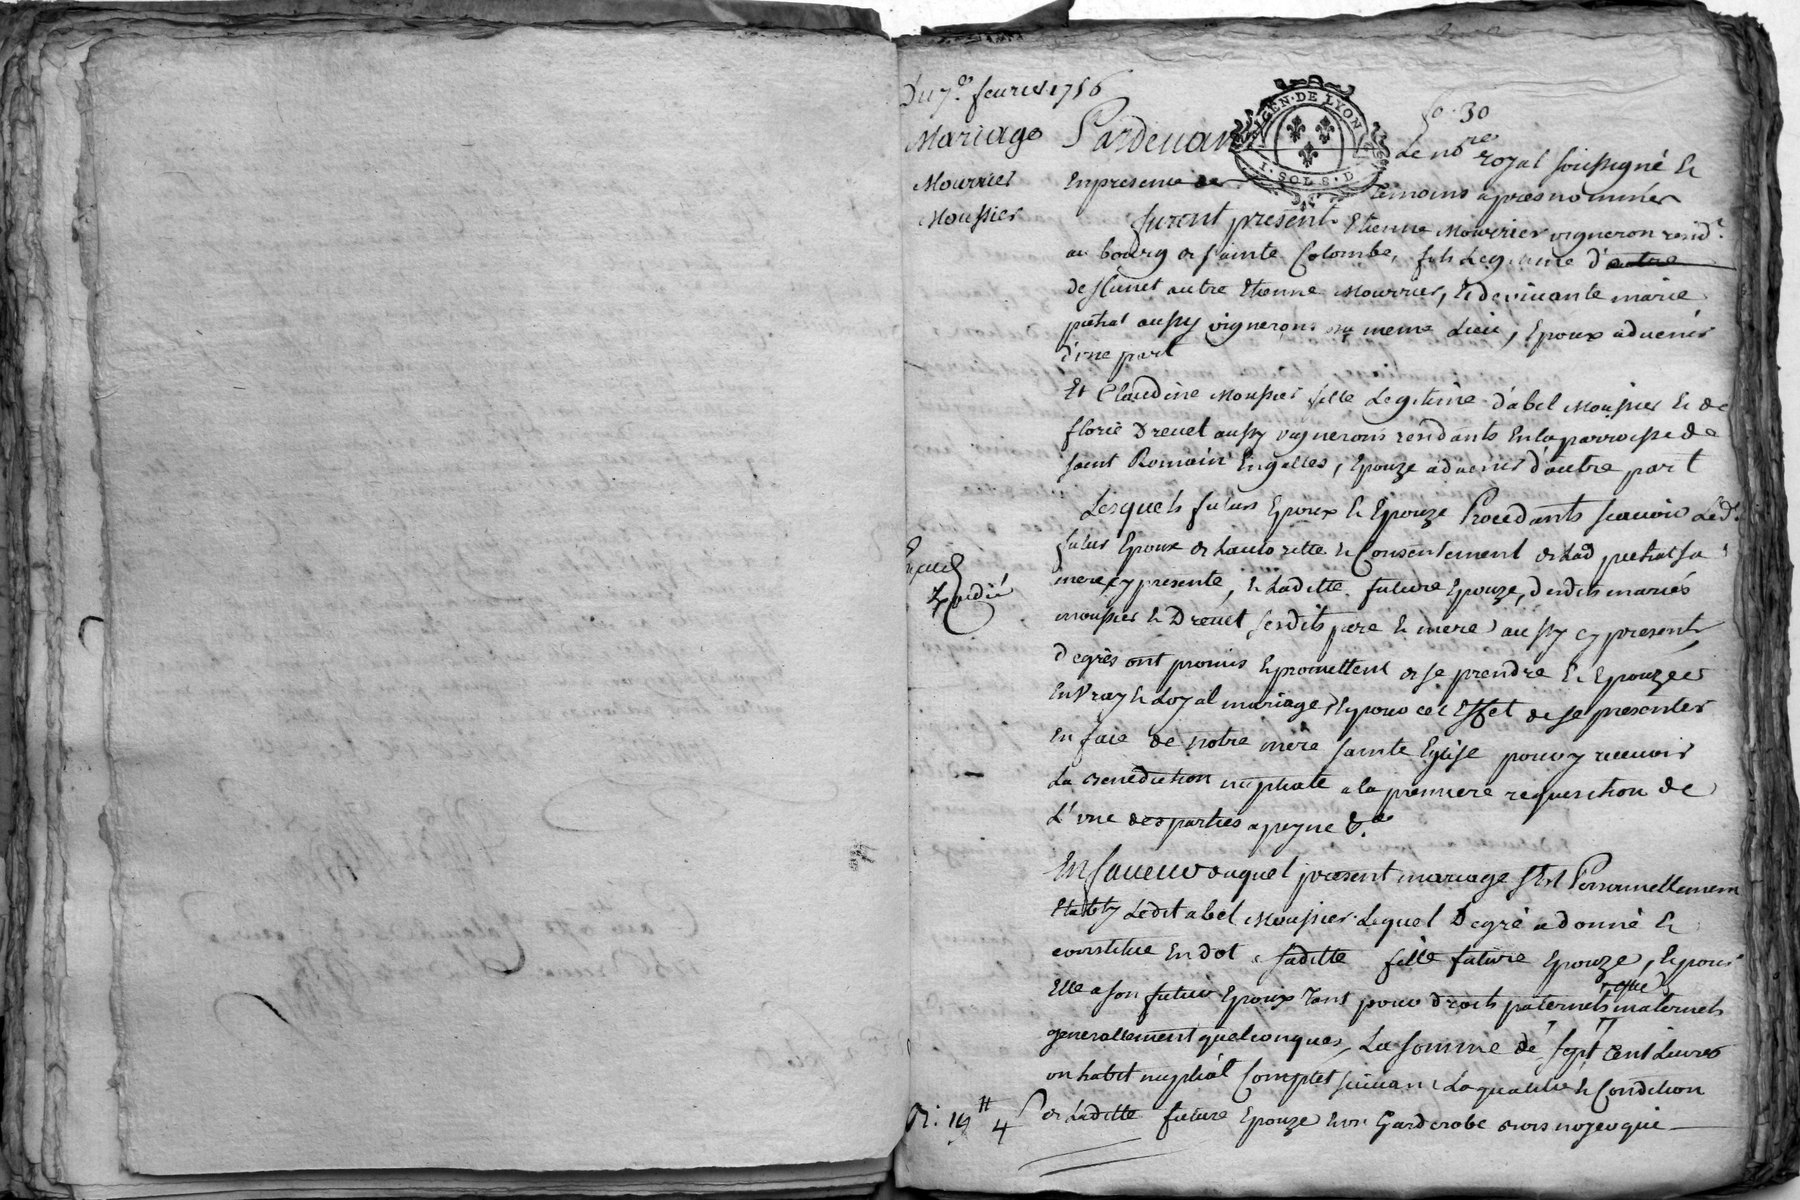 Du 7e. feurier 1756
Mariage
Mourrier
Moussier
GEN. DE LYON
1. SOL 8. D.
fo. 30
Pardeuant Le nore royal soussigné &
En presence de temoins apres nommés
furent present Etienne Mourrier vigneron resid.t
au bourg de sainte Colombe, fils Legitime d'autre
de feu autre Etienne Mourrier, & de viuante marie
aussy vignerons au meme Lieu, Epoux aduenir
d'vne part
Et Claudine Moussier fille Legitime d'abel Moussier & de
florie Dreuet aussy vignerons residants En la parroisse de
saint Romain En galles, Epouze aduenir d'autre part
Lesquels futurs Epoux & Epouze Procedants scauoir Led.
futur Epoux de Lautoritte & Consentement de Lad. sa
mere cy presente, & Laditte future Epouze, desdits mariés
moussier & Dreuet sesdits pere & mere aussy cy presents
Expedié
de gres ont promis & promettent de se prendre & Epouzer
En Vray & Loyal mariage, & pour cet Effet de se presenter
En face de notre mere sainte Eglise pour y receuoir
La benediction nuptiale a la premiere requisition de
L'vne des parties a peyne &.a
En faueur duquel present mariage s'Est Personnellement
Etably Ledit abel Moussier Lequel De gré a donné &
constitué En dot a saditte fille future Epouze, & pour
Elle a son futur Epoux tant pour droits paternels que maternels
generallement quelconques, La somme de sept cent Liures
vn habit nuptial Complet suiuant La qualité & Condition
de Laditte future Epouze & vn Garderobe bois noyer qui
19 4